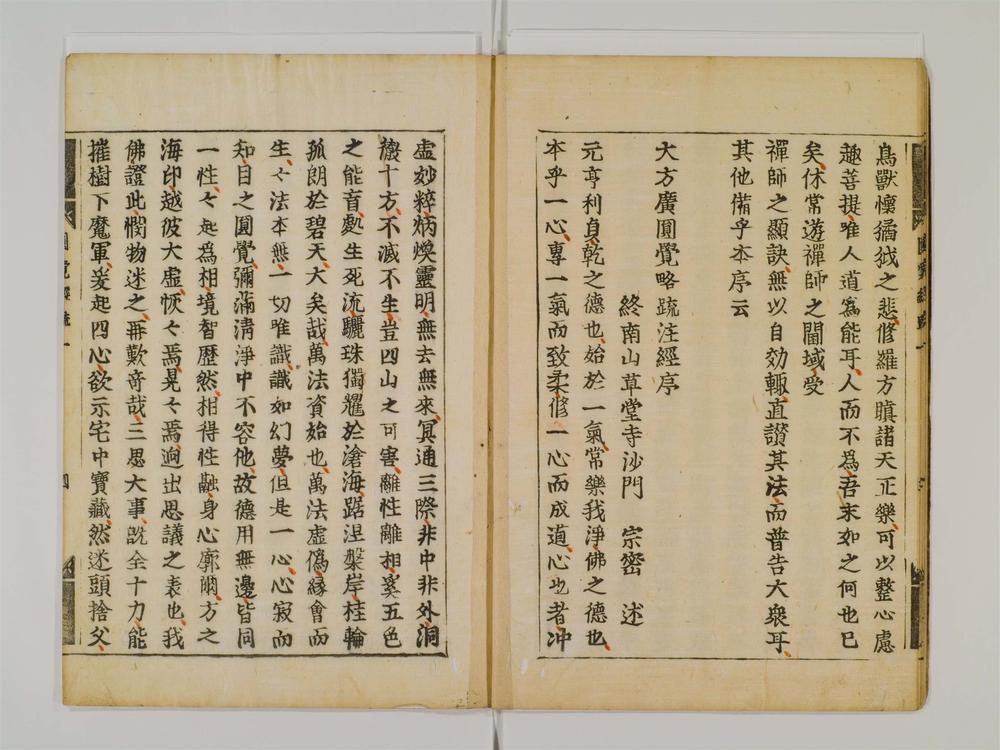 鳥獸懷獝狘之悲、修羅方瞋諸天正樂、可以整心慮
趣菩提、唯人道爲能耳、人而不爲、吾末如之何也已
矣、休常遊禪師之閫域、受
禪師之顯訣、無以自効輙直讃其法、而普告大衆耳、
其他備乎本序云
大方廣圓覺略疏注經序
終南山草堂寺沙門 宗密 述
元亨利貞、乾之德也、始於一氣、常樂我淨、佛之德也、
本乎一心、專一氣而致柔、修一心而成道、心也者、冲
虛妙粹、炳煥靈明、無去無來、冥通三際、非中非外、洞
徹十方、不滅不生、豈四山之可害、離性離相、奚五色
之能盲、處生死流、驪珠獨耀於滄海、踞涅槃岸、桂輪
孤朗於碧天、大矣哉、萬法資始也、萬法虛僞、緣會而
生、々法本無、一切唯識、識如幻夢、但是一心、心寂而
知、目之圓覺、彌滿清淨、中不容他、故德用無邊、皆同
一性、々起爲相、境智歷然、相得性融、身心廓爾、方之
海印、越彼大虛、恢々焉、晃々焉、逈出思議之表也、我
佛證此、愍物迷之、再歎奇哉、三思大事、旣全十力、能
摧樹下魔軍、爰起四心、欲示宅中寶藏、然迷頭捨父、
圓覺